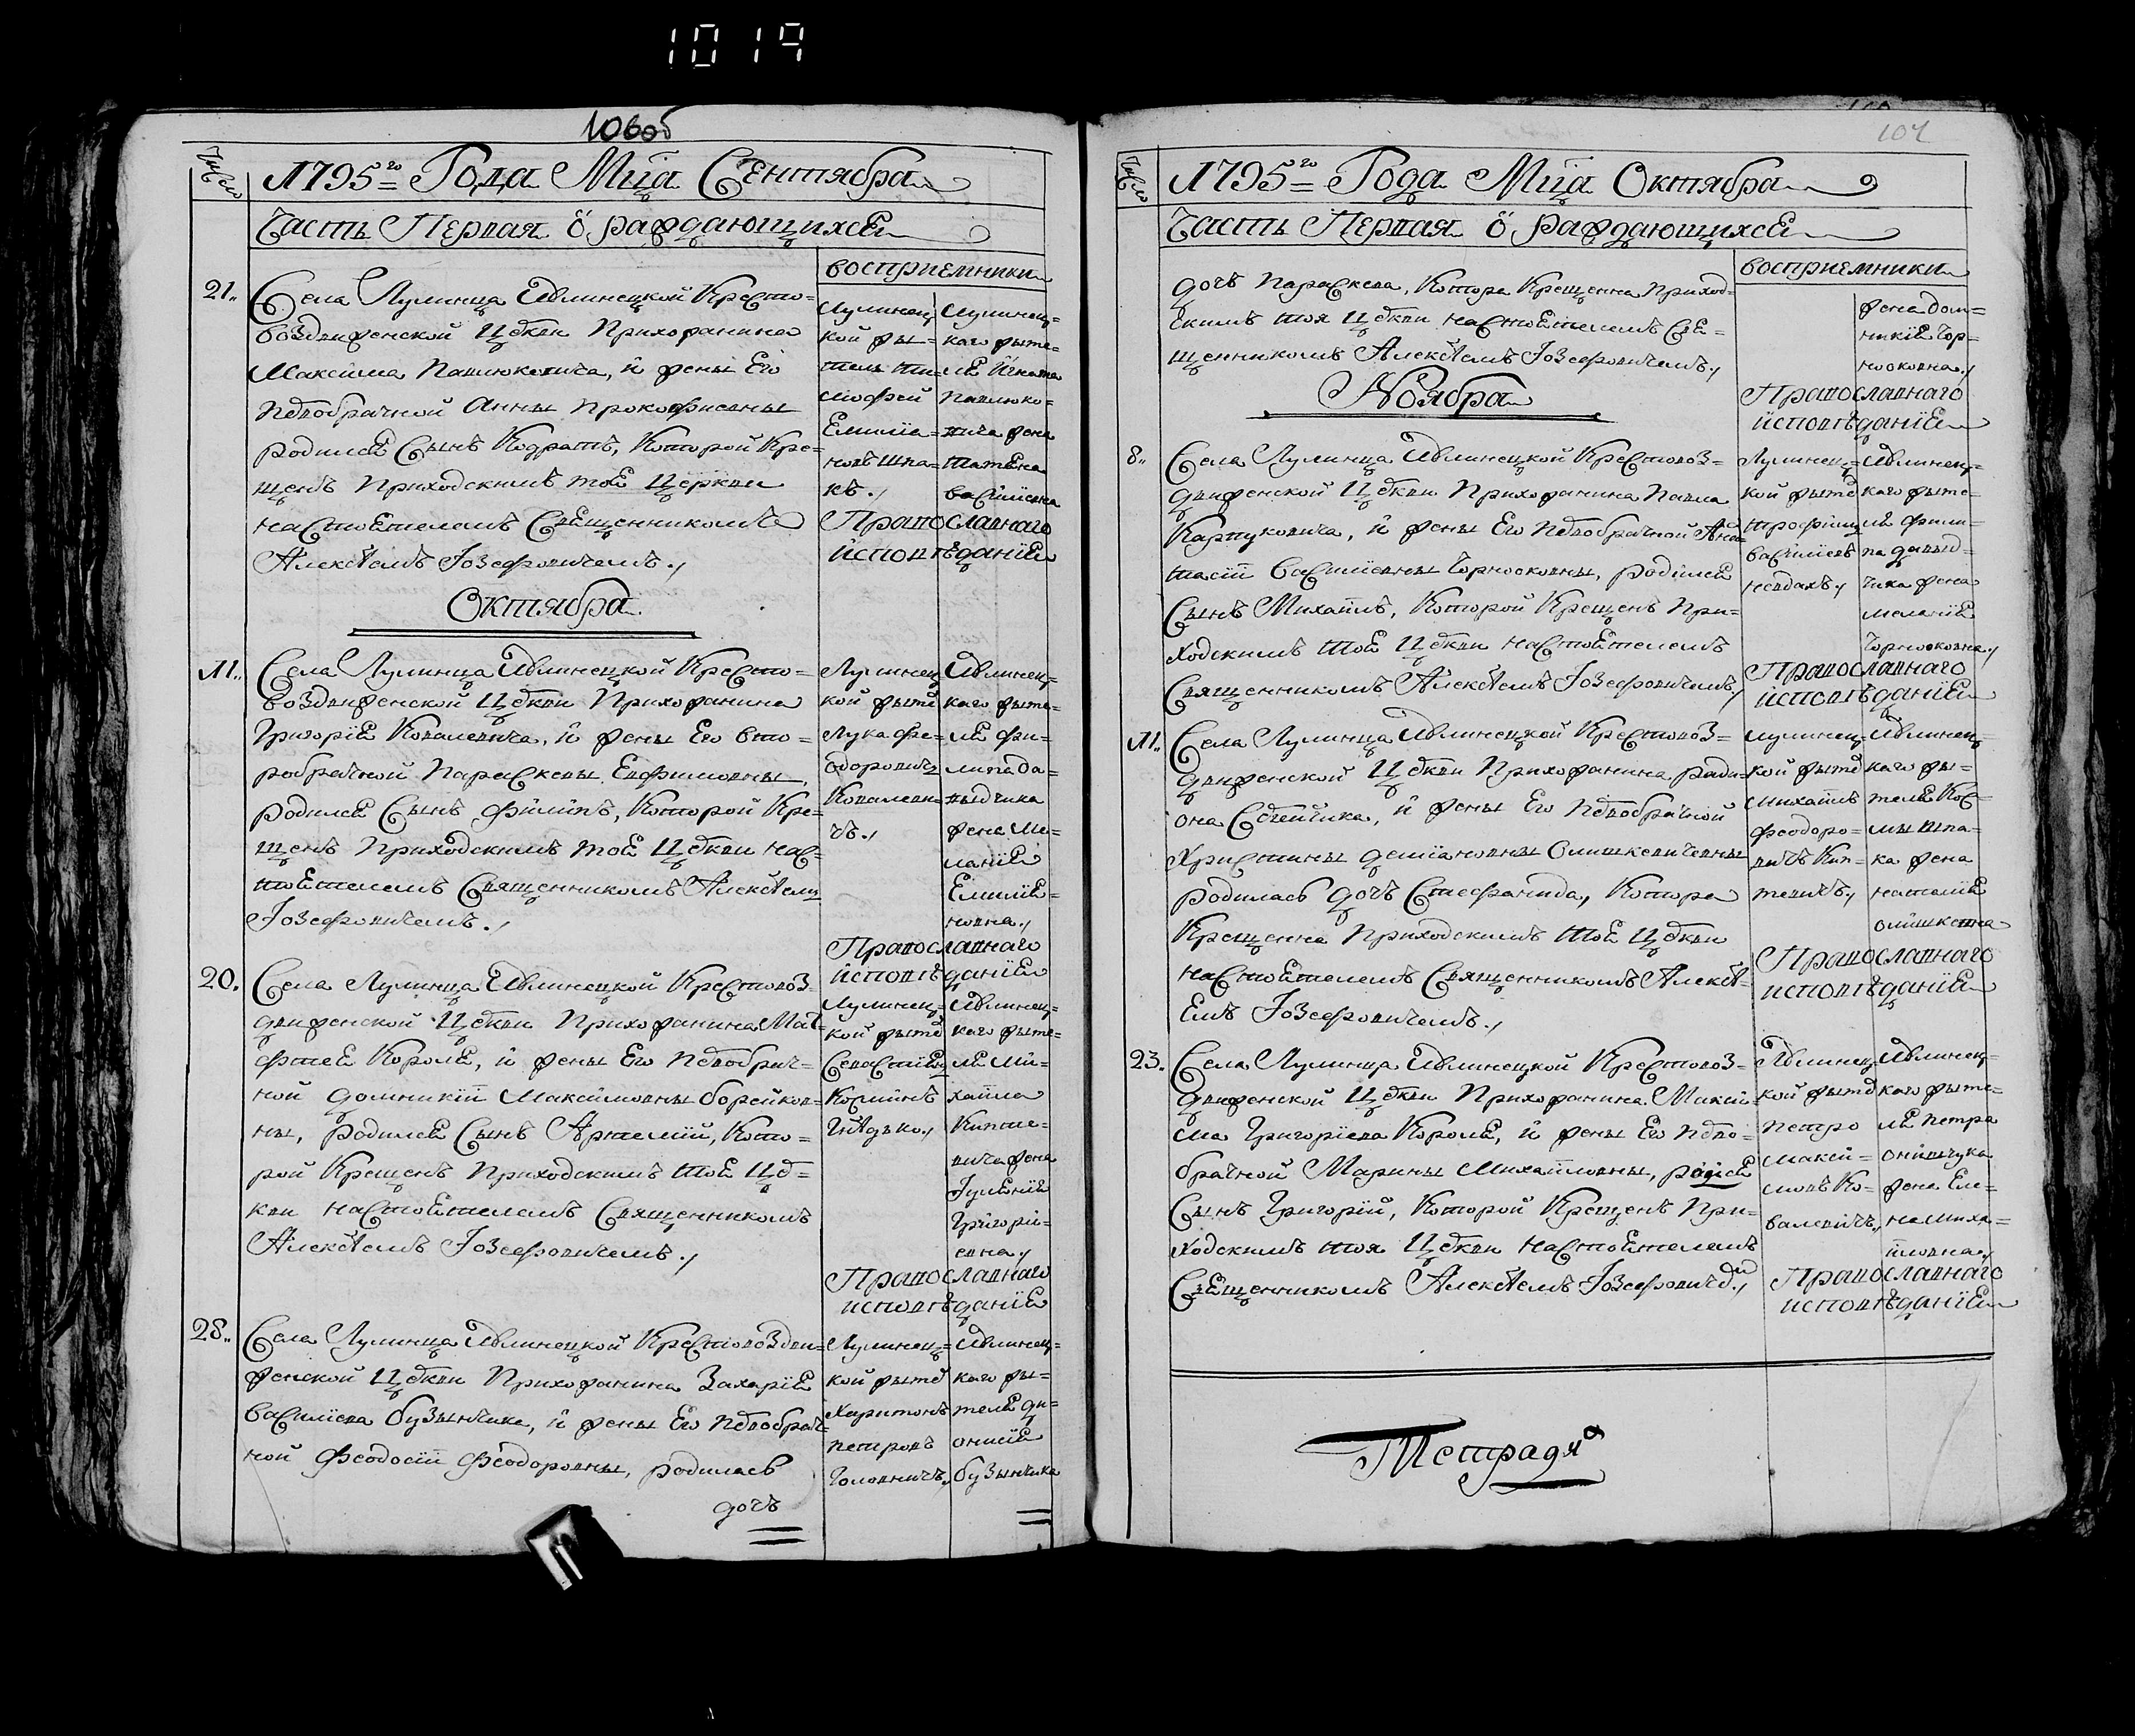 1019
106об
Число
1795го Года Мца Сентября
Часть Первая о раждающихся
восприемники
21.
Села Лулинца Лулинецкой Кресто=
воздвиженской Цркви Прихожанина
Максима Павлюкевича, и жены Его
первобрачной Анны Прокофиевны
родился Сынъ Кодратъ, Которой Кре=
щенъ Приходскимъ тоя Церкви
настоятелемъ Священникомъ
Алексѣемъ Іозефовичемъ.
Лулинец
кой жи=
тель Ти=
мофей
Емилїа=
новъ Шпа=
къ.
Лулинец=
каго жите=
ля Игната
Павлюко=
вича жена
Татіана
Василіевна
Православнаго
исповѣданїя
Октября
11.
Села Лулинца Лулинецкой Кресто=
воздвиженской Цркви Прихожанина
Григорїя Ковалевича, и жены Его вто=
робрачной Параскевы Евфимовны
родился Сынъ Филипъ, Которой Кре=
щенъ Приходскимъ тоя Цркви нас=
тоятелемъ Священникомъ Алексѣемъ
Іозефовичемъ.
Лулинец
кой жите
Лука Фе=
одоровичъ
Ковалеви=
чъ.
Лулинец=
каго жите=
ля Фи=
липа Да=
выдчика
жена Ме=
ланїя
Емилїя=
новна.
Православнаго
исповѣданїя
20.
Села Лулинца Лулинецкой Крестовоз=
движенской Цркви Прихожанина Мат=
фтея Короля, и жены Его первобрач=
ной Домникїи Максимовны Борейков=
ны, родился Сынъ Артемїй, Кото=
рой Крещенъ Приходскимъ тоя Цр=
кви настоятелемъ Священникомъ
Алексѣемъ Іозефовичемъ.
Лулинец=
кой жите
Севастїянъ
Космінъ
Лулинец=
каго жите=
ля Ми=
хаила
Кипте=
вича жена
Іулянїя
Григорі=
евна,
Православнаго
исповѣданїя
28.
Села Лулинца Лулинецкой Крестовоздви=
женской Цркви Прихожанина Захарїя
Василїева Бузынчика, и жены Его первобрач=
ной Феодосїи Феодоровны, родилась
дочь
Лулинец=
кой жите
Харитонъ
Петровъ
Головничъ,
Лулинец=
каго жи=
теля Ди=
онисїя
Бузынчика
107
Число
1795го Года Мца Октября
Часть Первая о раждающихся
восприемники
дочь Параскева, Котора Крещенна Приход=
скимъ тоя Цркви настоятелемъ Свя=
щенникомъ Алексѣемъ Іозефовичемъ.
жена Дом=
никїя Чор=
нооковна.
Православнаго
исповѣданїя
Ноября
8.
Села Лулинца Лулинецкой Крестовоз=
движенской Цркви Прихожанина Павла
Карпуковича, и жены Его первобрачной Ана=
тасїи Василїевны Чорнооковны, родился
Сынъ Михаилъ, Которой Крещенъ При=
ходскимъ тоя Цркви настоятелемъ
Священникомъ Алексѣемъ Іозефовичемъ
Лулинец=
кой жите
Трофимъ
Василїевъ
Невдахъ,
Лулинец=
каго жите=
ля Фили=
па Давыд=
чика жена
Меланїя
Чорнооковна,
Православнаго
исповѣданїя
11.
Села Лулинца Лулинецкой Крестовоз=
движенской Цркви Прихожанина Роди=
она и жены Его первобрачной
Христины Демїановны Олишкевичевны
родилась дочь Стефанида, Котора
Крещенна Приходскимъ тоя Цркви
настоятелемъ Священникомъ Алексѣ=
емъ Іозефовичемъ.
Лулинец=
кой жите
Михаилъ
Феодоро=
вичъ Кип=
тевичъ,
Лулинец=
каго жи=
теля Кос=
мы Шпа=
ка жена
Наталїя
Олишкевна
Православнаго
исповѣданїя
23.
Села Лулинца Лулинецкой Крестовоз=
движенской Цркви Прихожанина Макси=
ма Григорїева Короля, и жены Его перво=
брачной Марины Михаиловны, родися
Сынъ Григорїй, Которой Крещенъ При=
ходскимъ тоя Цркви настоятелемъ
Священникомъ Алексѣемъ Іозефовичем.
Лулинец
кой жите
Петро
Макси=
мовъ Ко=
валевичъ,
Лулинец=
каго жите=
ля Петра
Онищука
жена Еле=
на Миха=
иловна,
Православнаго
исповѣданїя
Тетрадя